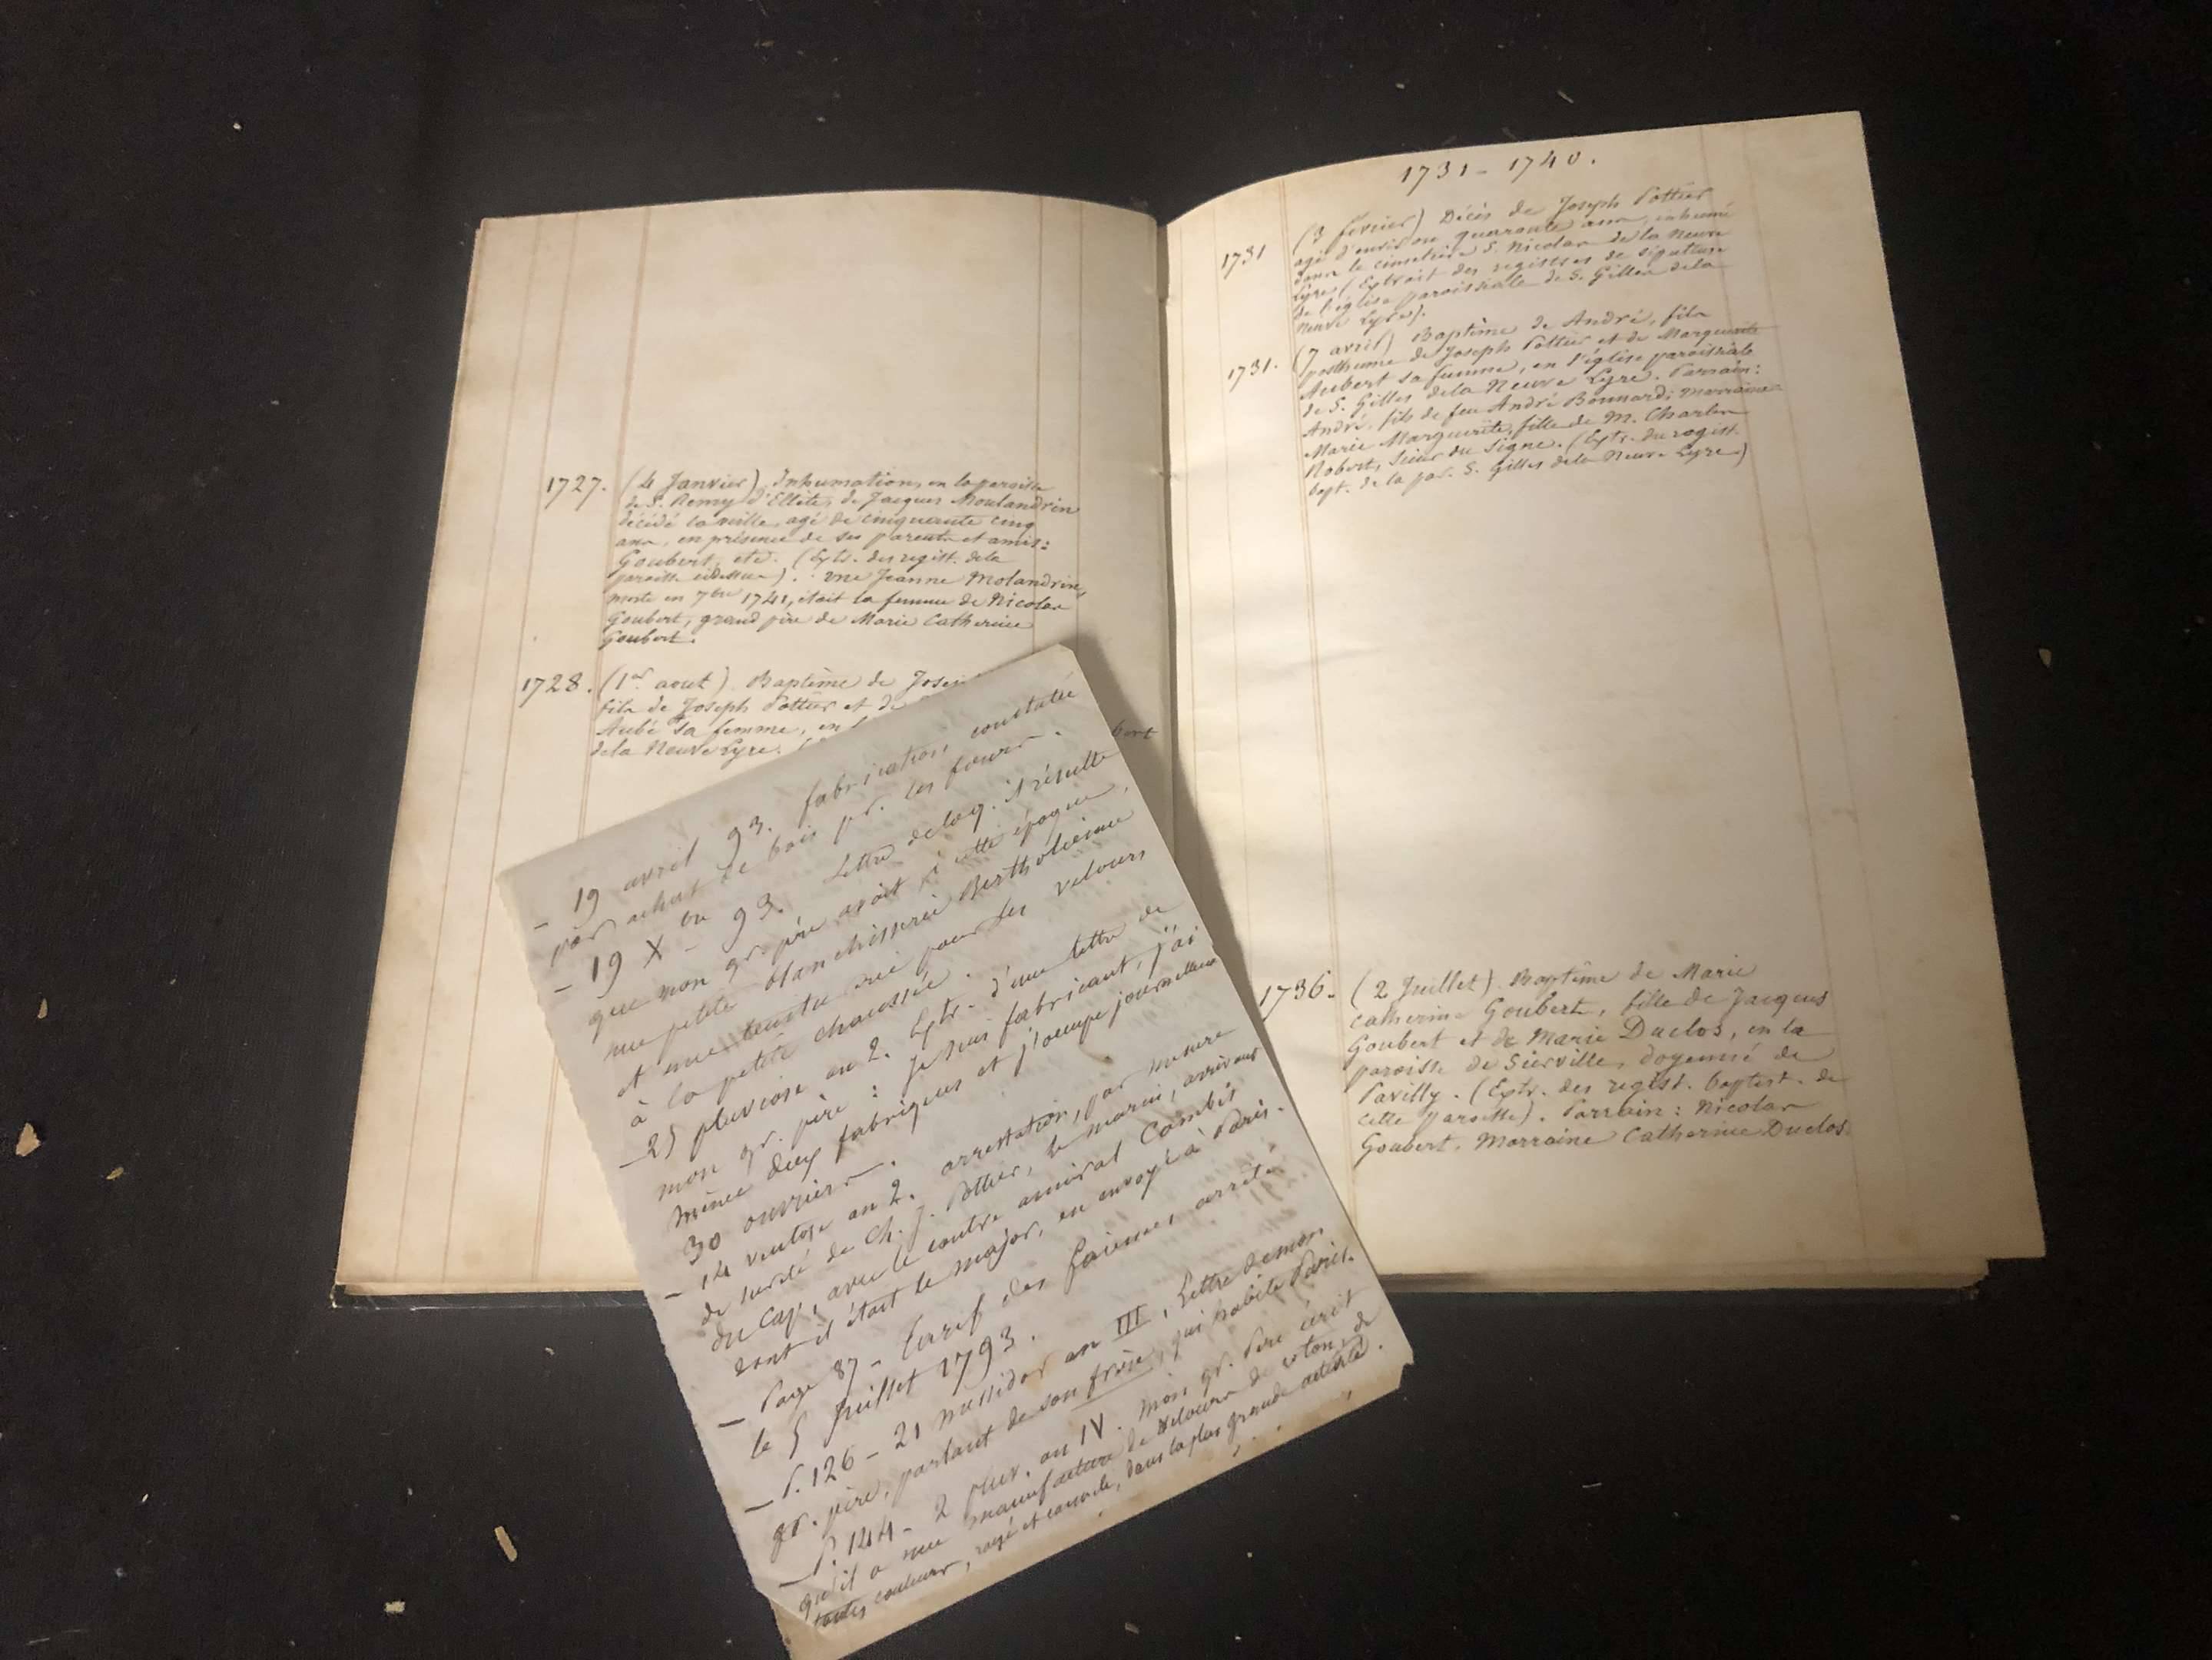 1727. (4 Janvier) Inhumation, en la paroisse
de S. Remy d'Ellite, de Jacques Moulandrin
décédé la veille, agé de cinquante cinq
ans, en présence de ses parents et amis:
Goubert, etc. (Extr. des regist. de la
paroisse cidessus). une Jeanne Molandrin,
morte en 7bre 1741, était la femme de Nicolas
Goubert, grand père de Marie Catherine
Goubert.
1728. (1er aout). Baptême de Josep
fils de Joseph Pottier et de
Aubé sa femme, en l
de la Neuve Lyre.
bert
1731 - 1740.
1731 (3 février) Décès de Joseph Pottier
agé d'environ quarante ans, inhumé
dans le cimetière S. Nicolas de la Neuve
Lyre (Extrait des registres de sépulture
de l'église paroissiale de S. Gilles de la
Neuve Lyre).
1731. (7 avril) Baptême de André, fils
posthume de Joseph Pottier et de Marguerite
Aubert sa femme, en l'église paroissiale
de S. Gilles de la Neuve Lyre. Parrain:
André, fils de feu André Bonnard; marraine
Marie Marguerite, fille de M. Charles
Robert, Sieur du Signe. (Extr. du regist.
bapt. de la par. S. Gilles de la Neuve Lyre)
1736. (2 Juillet). Baptême de Marie
Catherine Goubert, fille de Jacques
Goubert et de Marie Duclos, en la
paroisse de Sierville, doyenné de
Pavilly. (Extr. des regist. baptist. de
cette paroisse). Parrain: Nicolas
Goubert. Marraine Catherine Duclos.
- 19 avril 93. fabrication constatée
par achat de bois pr. les fours.
- 19 X bre 93. Lettre de laq. il résulte
que mon gr. père avait à cette époque,
une petite blanchisserie
et une teinturie pour les velours
à la petite chaussée.
- 25 pluviose an 2. Extr. d'une lettre de
mon gr. père: je suis fabricant, j'ai
même deux fabriques et j'occupe journellement
30 ouvriers.
- 14 ventose an 2. arrestation, par mesure
de sureté de Ch. J. Pottier, le marin, arrivant
du Cap, avec le contre amiral Cambis
dont il était le major, en envoyé à Paris.
- Page 87 - tarif des faiences arrêté
le 5 Juillet 1793.
- P. 126 - 21 messidor an III, Lettre de mon
gr. père, parlant de son frère, qui habite Paris.
- P. 144 - 2 pluv. an IV. mon gr. Père écrit
qu'il a une manufacture de velours de coton, de
toutes couleurs, rayé et cannelé, dans la plus grande activité.